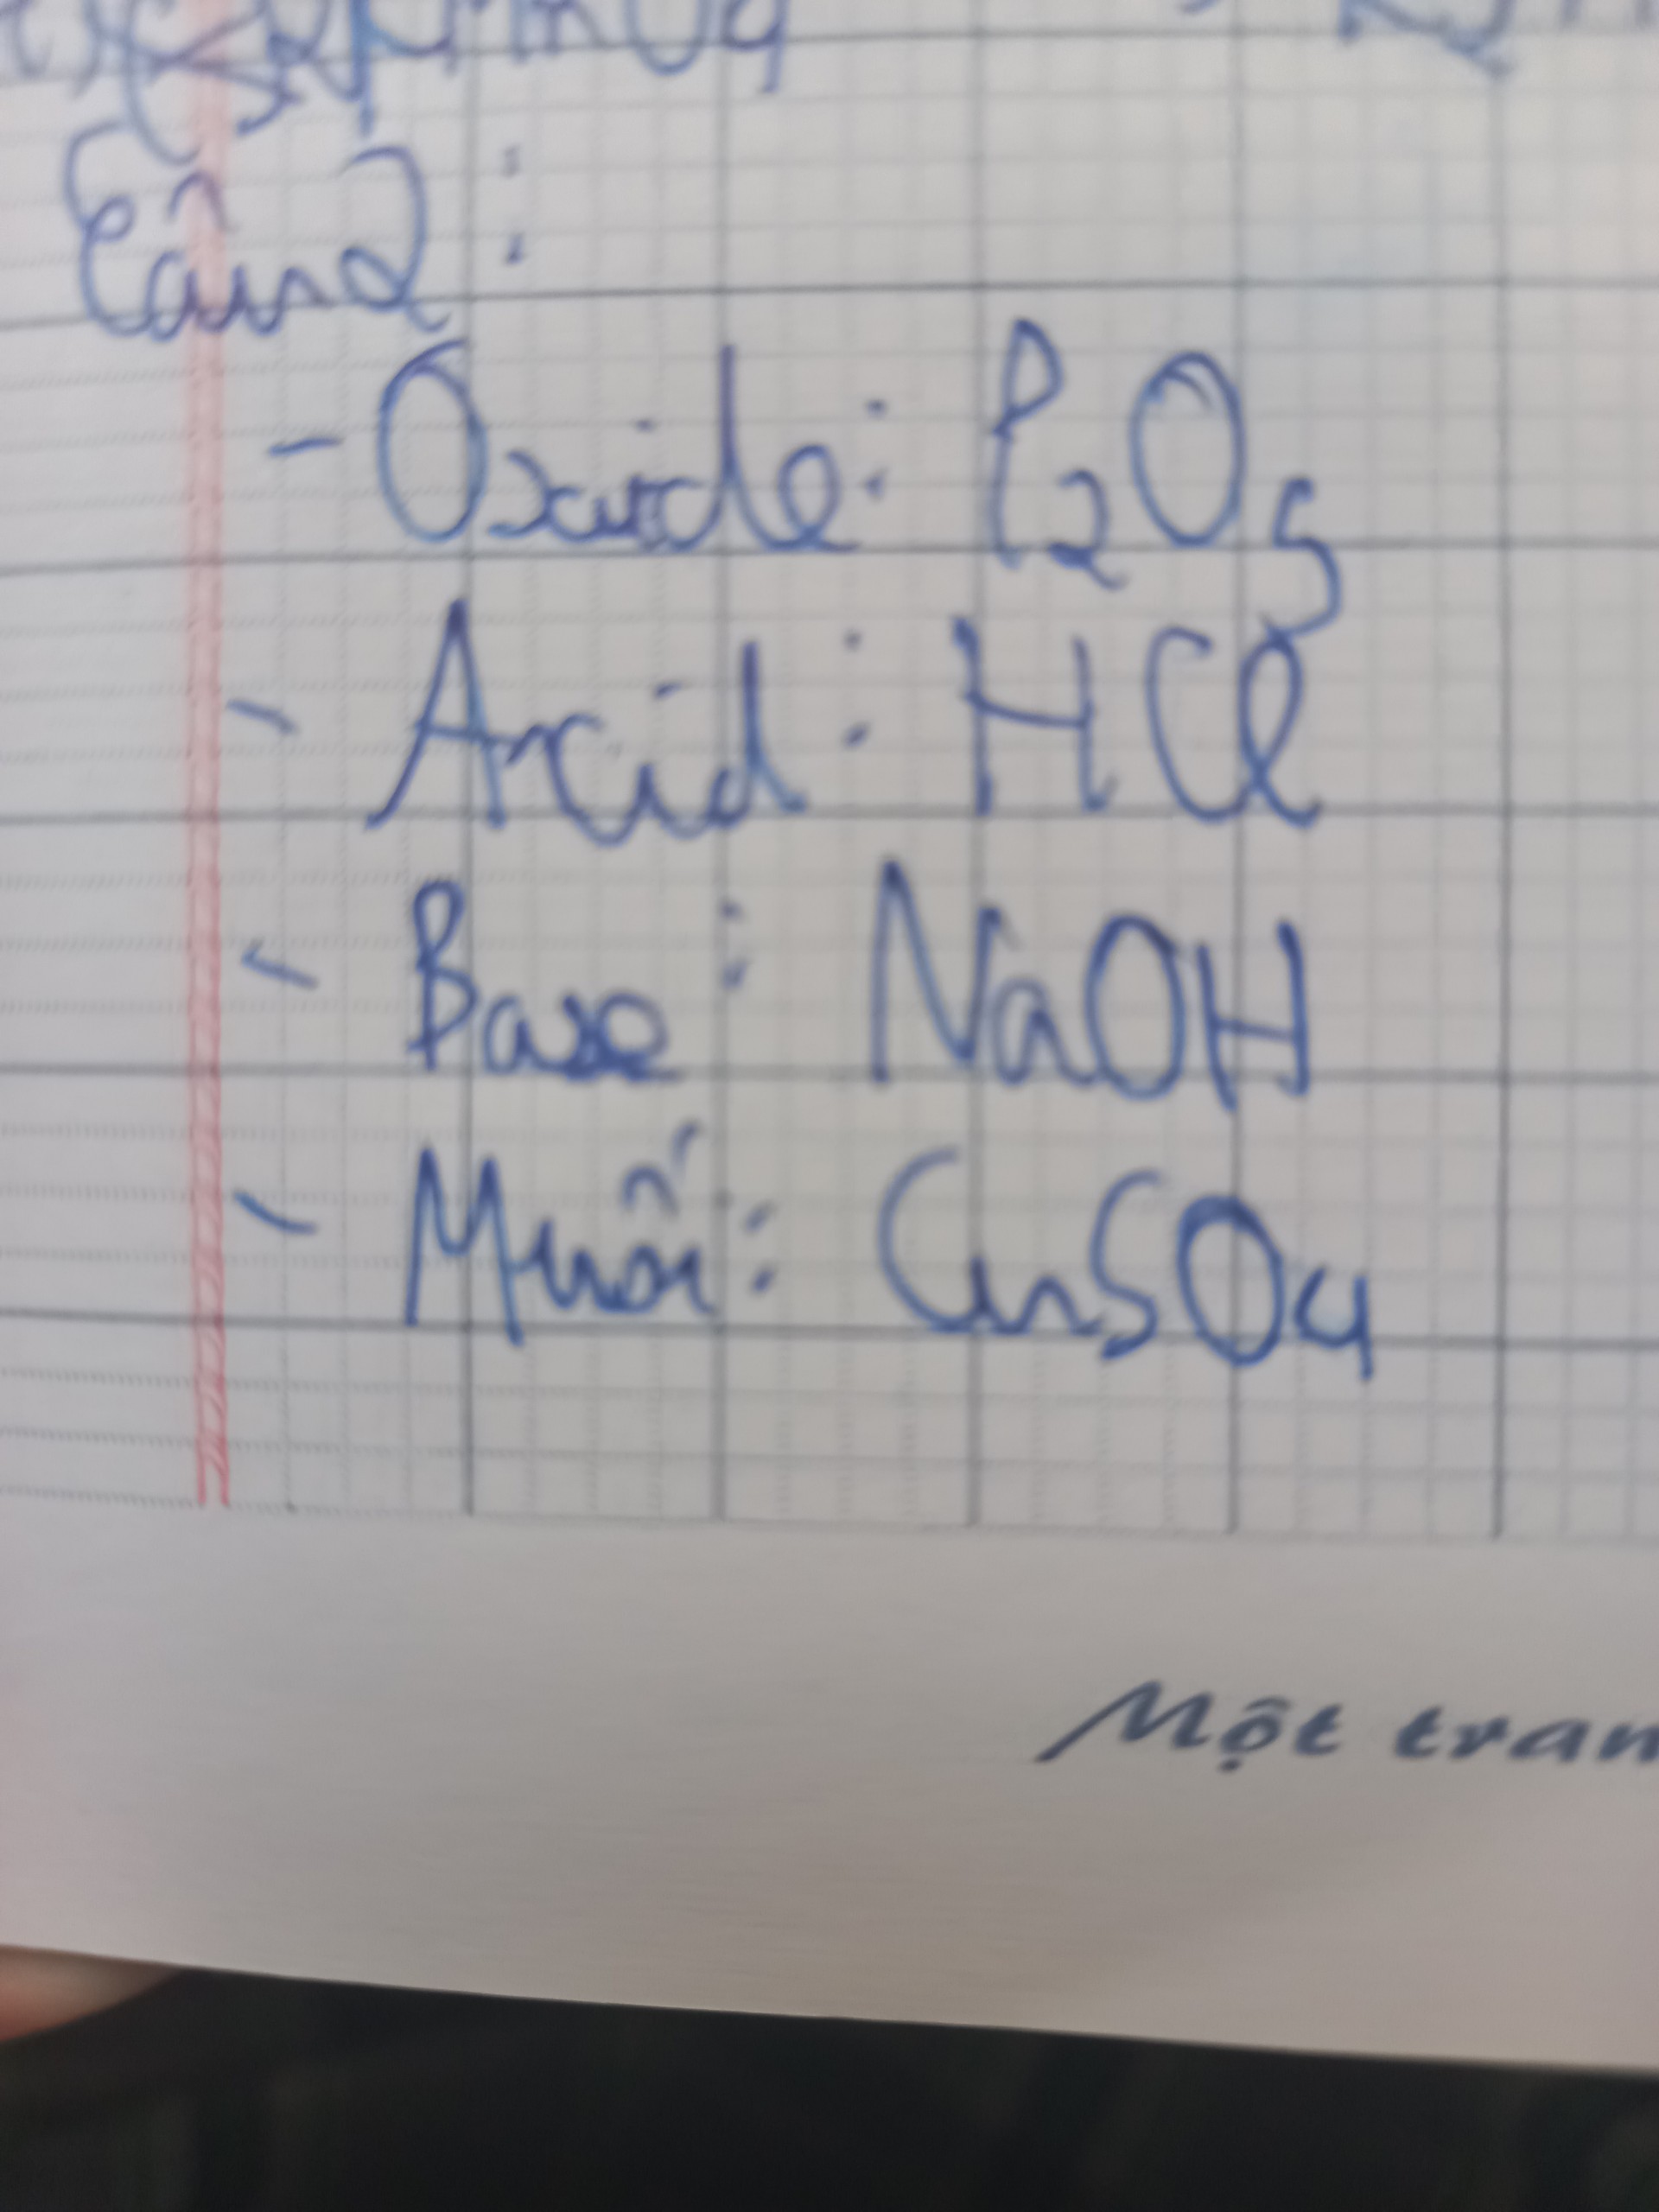 Câu 2:
- Oxide: P2O5
- Acid: HCl
- Base: NaOH
- Muối: CuSO4
Một